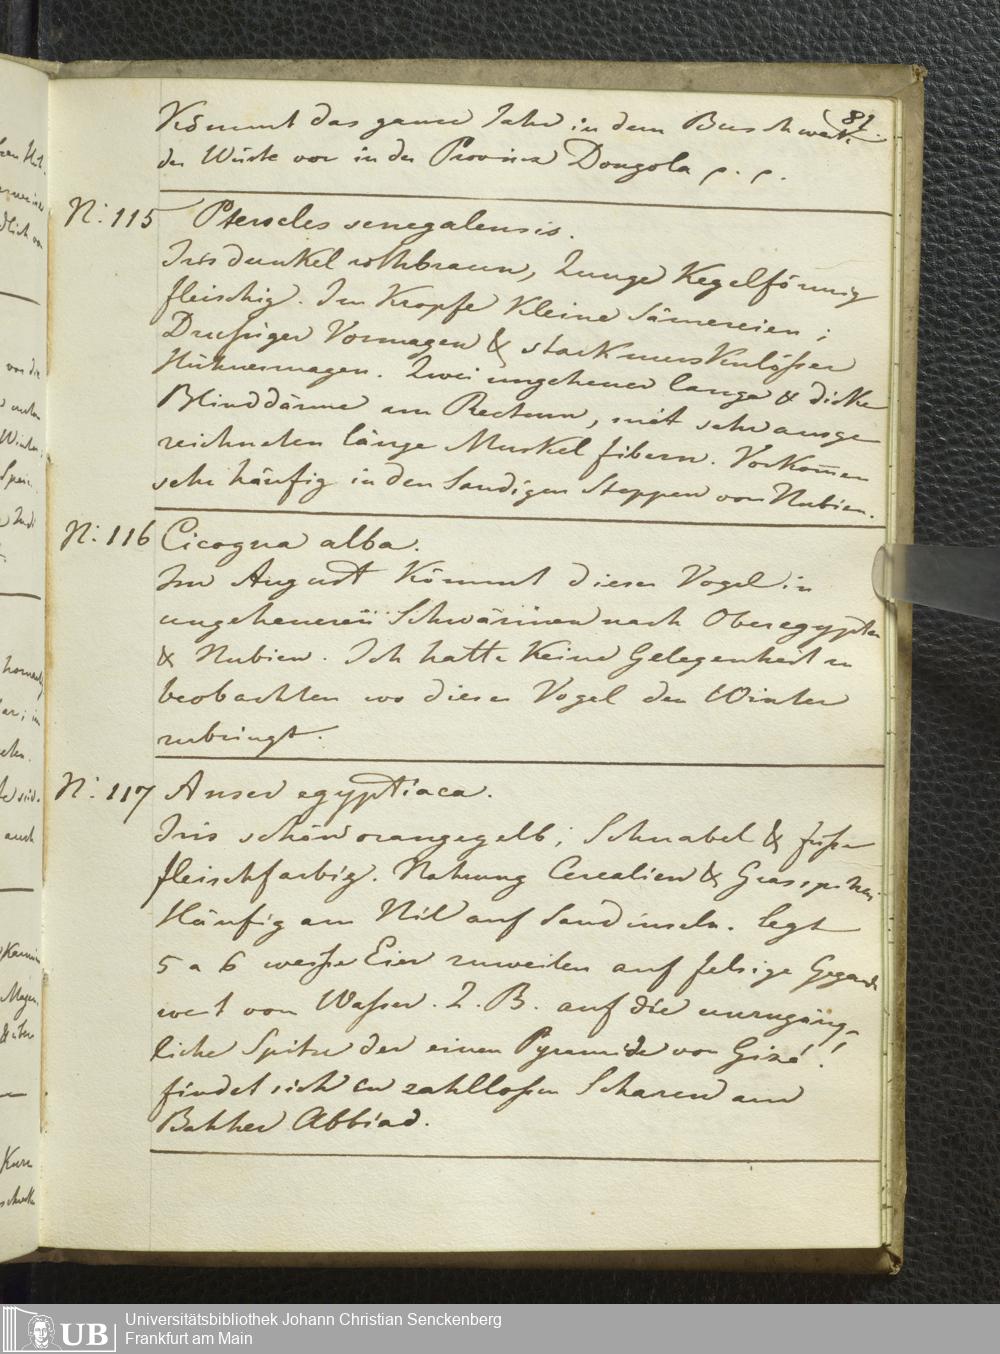 81.
Kömmt das ganze Jahr in dem Buschwerk
der Wüste vor in der Provinz Dongola p. p.
N: 115 Pterocles senegalensis.
Iris dunkel rothbraun, Zunge Kegelförmig
fleischig. Im Kropfe Kleine Sämereien;
Drüsiger Vormagen & stark muskulöser
Hühnermagen. Zwei ungeheuer lange & dicke
Blinddärme am Rectum, mit sehr ausge
zeichneten länge Muskel fibern. Vorkommen
sehr häufig in den Sandigen Steppen von Nubien.
N: 116 Cicogna alba.
Im August Kömmt dieser Vogel in
ungeheueren Schwärmen nach Oberegypten
& Nubien. Ich hatte Keine Gelegenheit zu
beobachten wo dieser Vogel den Winter
zubringt.
N: 117 Anser egyptiaca.
Iris schön orangegelb; Schnabel & füsse
fleischfarbig. Nahrung Cerealien & Grasspitzen.
Häufig am Nil auf Sandinseln. legt
5 a 6 weisse Eier zuweilen auf felsige Gegenden
weit vom Wasser. Z. B. auf die unzugäng-
liche Spitze der einen Pyramide von Gizé!
findet sich in zahllosen Scharen am
Bahher Abbiad.
Universitätsbibliothek Johann Christian Senckenberg
Frankfurt am Main
UB